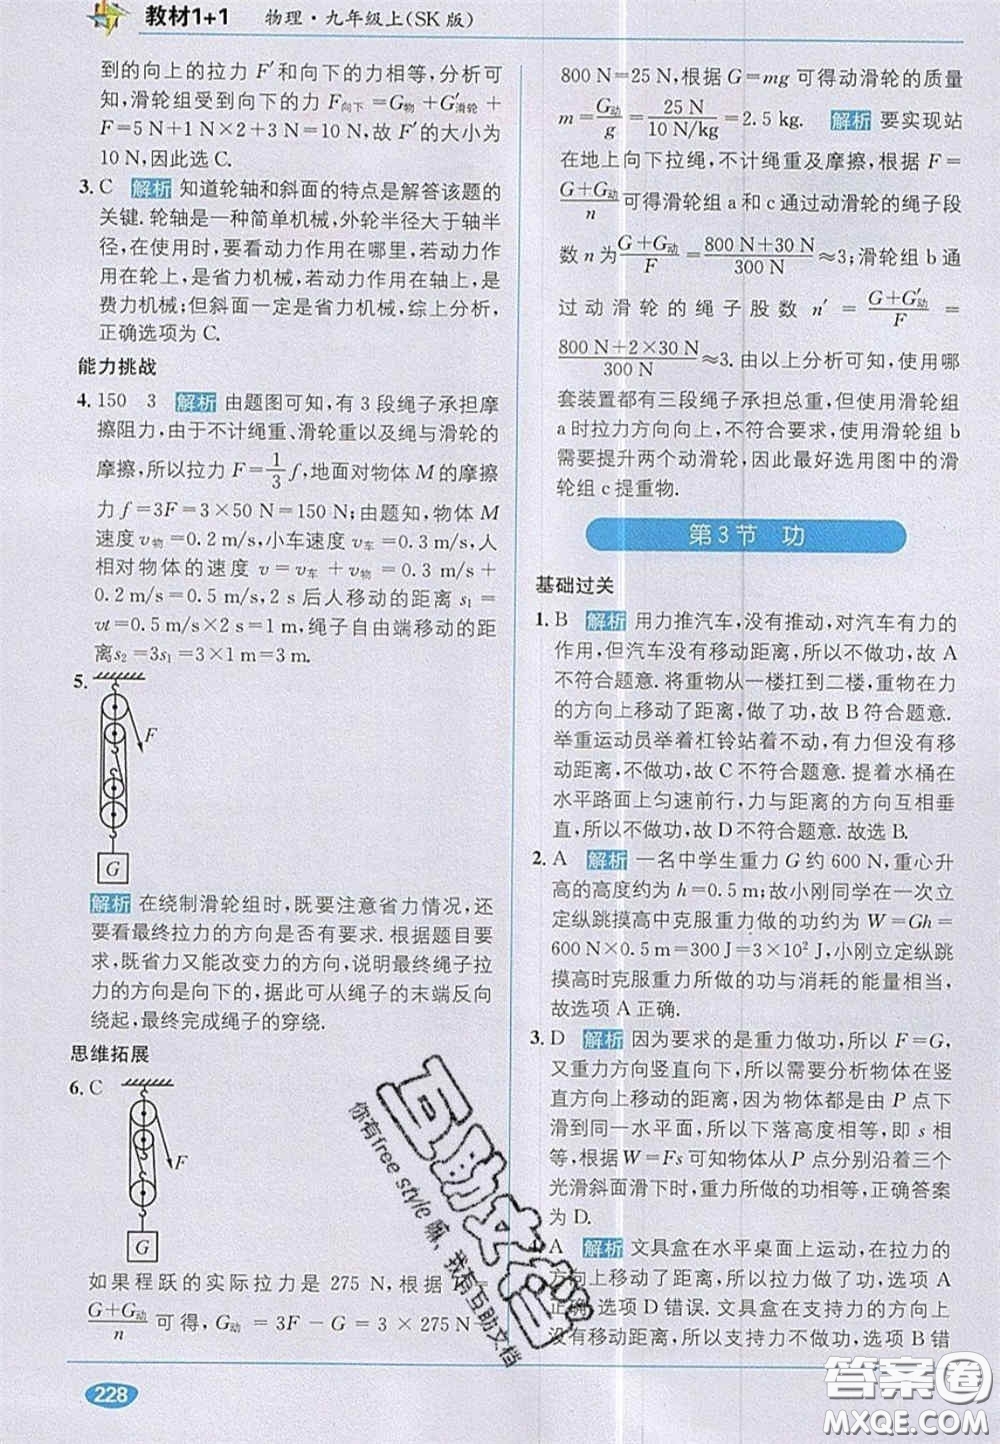 教材1+1 物理·九年级上(SK版)
到的向上的拉力 F′和向下的力相等,分析可
知,滑轮组受到向下的力 F向下=G物+G′滑轮+
F=5 N+1 N×2+3 N=10 N,故 F′的大小为
10 N,因此选 C.
3. C 解析 知道轮轴和斜面的特点是解答该题的
关键.轮轴是一种简单机械,外轮半径大于轴半
径,在使用时,要看动力作用在哪里,若动力作
用在轮上,是省力机械,若动力作用在轴上,是
费力机械;但斜面一定是省力机械,综上分析,
正确选项为 C.
能力挑战
4. 150 3 解析 由题图可知,有 3 段绳子承担摩
擦阻力,由于不计绳重、滑轮重以及绳与滑轮的
摩擦,所以拉力 F=1/3 f,地面对物体 M 的摩擦
力 f=3F=3×50 N=150 N;由题知,物体 M
速度 v物=0.2 m/s,小车速度 v车=0.3 m/s,人
相对物体的速度 v=v车+v物=0.3 m/s+
0.2 m/s=0.5 m/s,2 s 后人移动的距离 s1=
vt=0.5 m/s×2 s=1 m,绳子自由端移动的距
离s2=3s1=3×1 m=3 m.
5.
F
G
解析 在绕制滑轮组时,既要注意省力情况,还
要看最终拉力的方向是否有要求.根据题目要
求,既省力又能改变力的方向,说明最终绳子拉
力的方向是向下的,据此可从绳子的末端反向
绕起,最终完成绳子的穿绕.
思维拓展
6. C
F
G
如果程跃的实际拉力是 275 N,根据 F=
(G+G动)/n 可得,G动=3F-G=3×275 N-
800 N=25 N,根据 G=mg 可得动滑轮的质量
m=G动/g=25 N/(10 N/kg)=2.5 kg. 解析 要实现站
在地上向下拉绳,不计绳重及摩擦,根据 F=
(G+G动)/n 可得滑轮组 a 和 c 通过动滑轮的绳子段
数 n 为 (G+G动)/F=(800 N+30 N)/300 N≈3;滑轮组 b 通
过动滑轮的绳子股数 n′=(G+G′动)/F=
(800 N+2×30 N)/300 N≈3.由以上分析可知,使用哪
套装置都有三段绳子承担总重,但使用滑轮组
a 时拉力方向向上,不符合要求,使用滑轮组 b
需要提升两个动滑轮,因此最好选用图中的滑
轮组 c 提重物.
第3节 功
基础过关
1. B 解析 用力推汽车,没有推动,对汽车有力的
作用,但汽车没有移动距离,所以不做功,故 A
不符合题意.将重物从一楼扛到二楼,重物在力
的方向上移动了距离,做了功,故 B 符合题意.
举重运动员举着杠铃站着不动,有力但没有移
动距离,不做功,故 C 不符合题意.提着水桶在
水平路面上匀速前行,力与距离的方向互相垂
直,所以不做功,故 D 不符合题意.故选 B.
2. A 解析 一名中学生重力 G 约 600 N,重心升
高的高度约为 h=0.5 m;故小刚同学在一次立
定纵跳摸高中克服重力做的功约为 W=Gh=
600 N×0.5 m=300 J=3×10² J,小刚立定纵跳
摸高时克服重力所做的功与消耗的能量相当,
故选项 A 正确.
3. D 解析 因为要求的是重力做功,所以 F=G,
又重力方向竖直向下,所以需要分析物体在竖
直方向上移动的距离.因为物体都是由 P 点下
滑到同一水平面,所以下落高度相等,即 s 相
等,根据 W=Fs 可知物体从 P 点分别沿着三个
光滑斜面滑下时,重力所做的功相等,正确答案
为 D.
A 解析 文具盒在水平桌面上运动,在拉力的
方向上移动了距离,所以拉力做功,选项 A
正确,选项 D 错误.文具盒在支持力的方向上
没有移动距离,所以支持力不做功,选项 B 错
228
互助文档
你有free style嘛,我有互助文档
答案圈
MXQE.COM